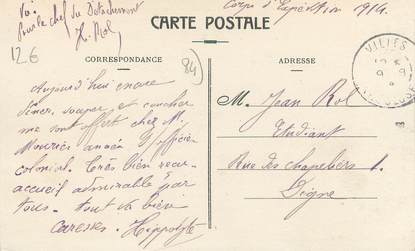 Vu :
Pour le chef du Détachement
H. Rol
Corps d'Expédition 1914.
CARTE POSTALE
126
(84)
CORRESPONDANCE
Aujourd'hui encore
dîner, souper et coucher
me sont offert chez M.
Mourier année officier
colonial. Très bien reçu
accueil admirable par
tous. Tout va bien
Caresses. Hippolyte
ADRESSE
M. Jean Rol
Etudiant
Rue des chapeliers 1.
Digne